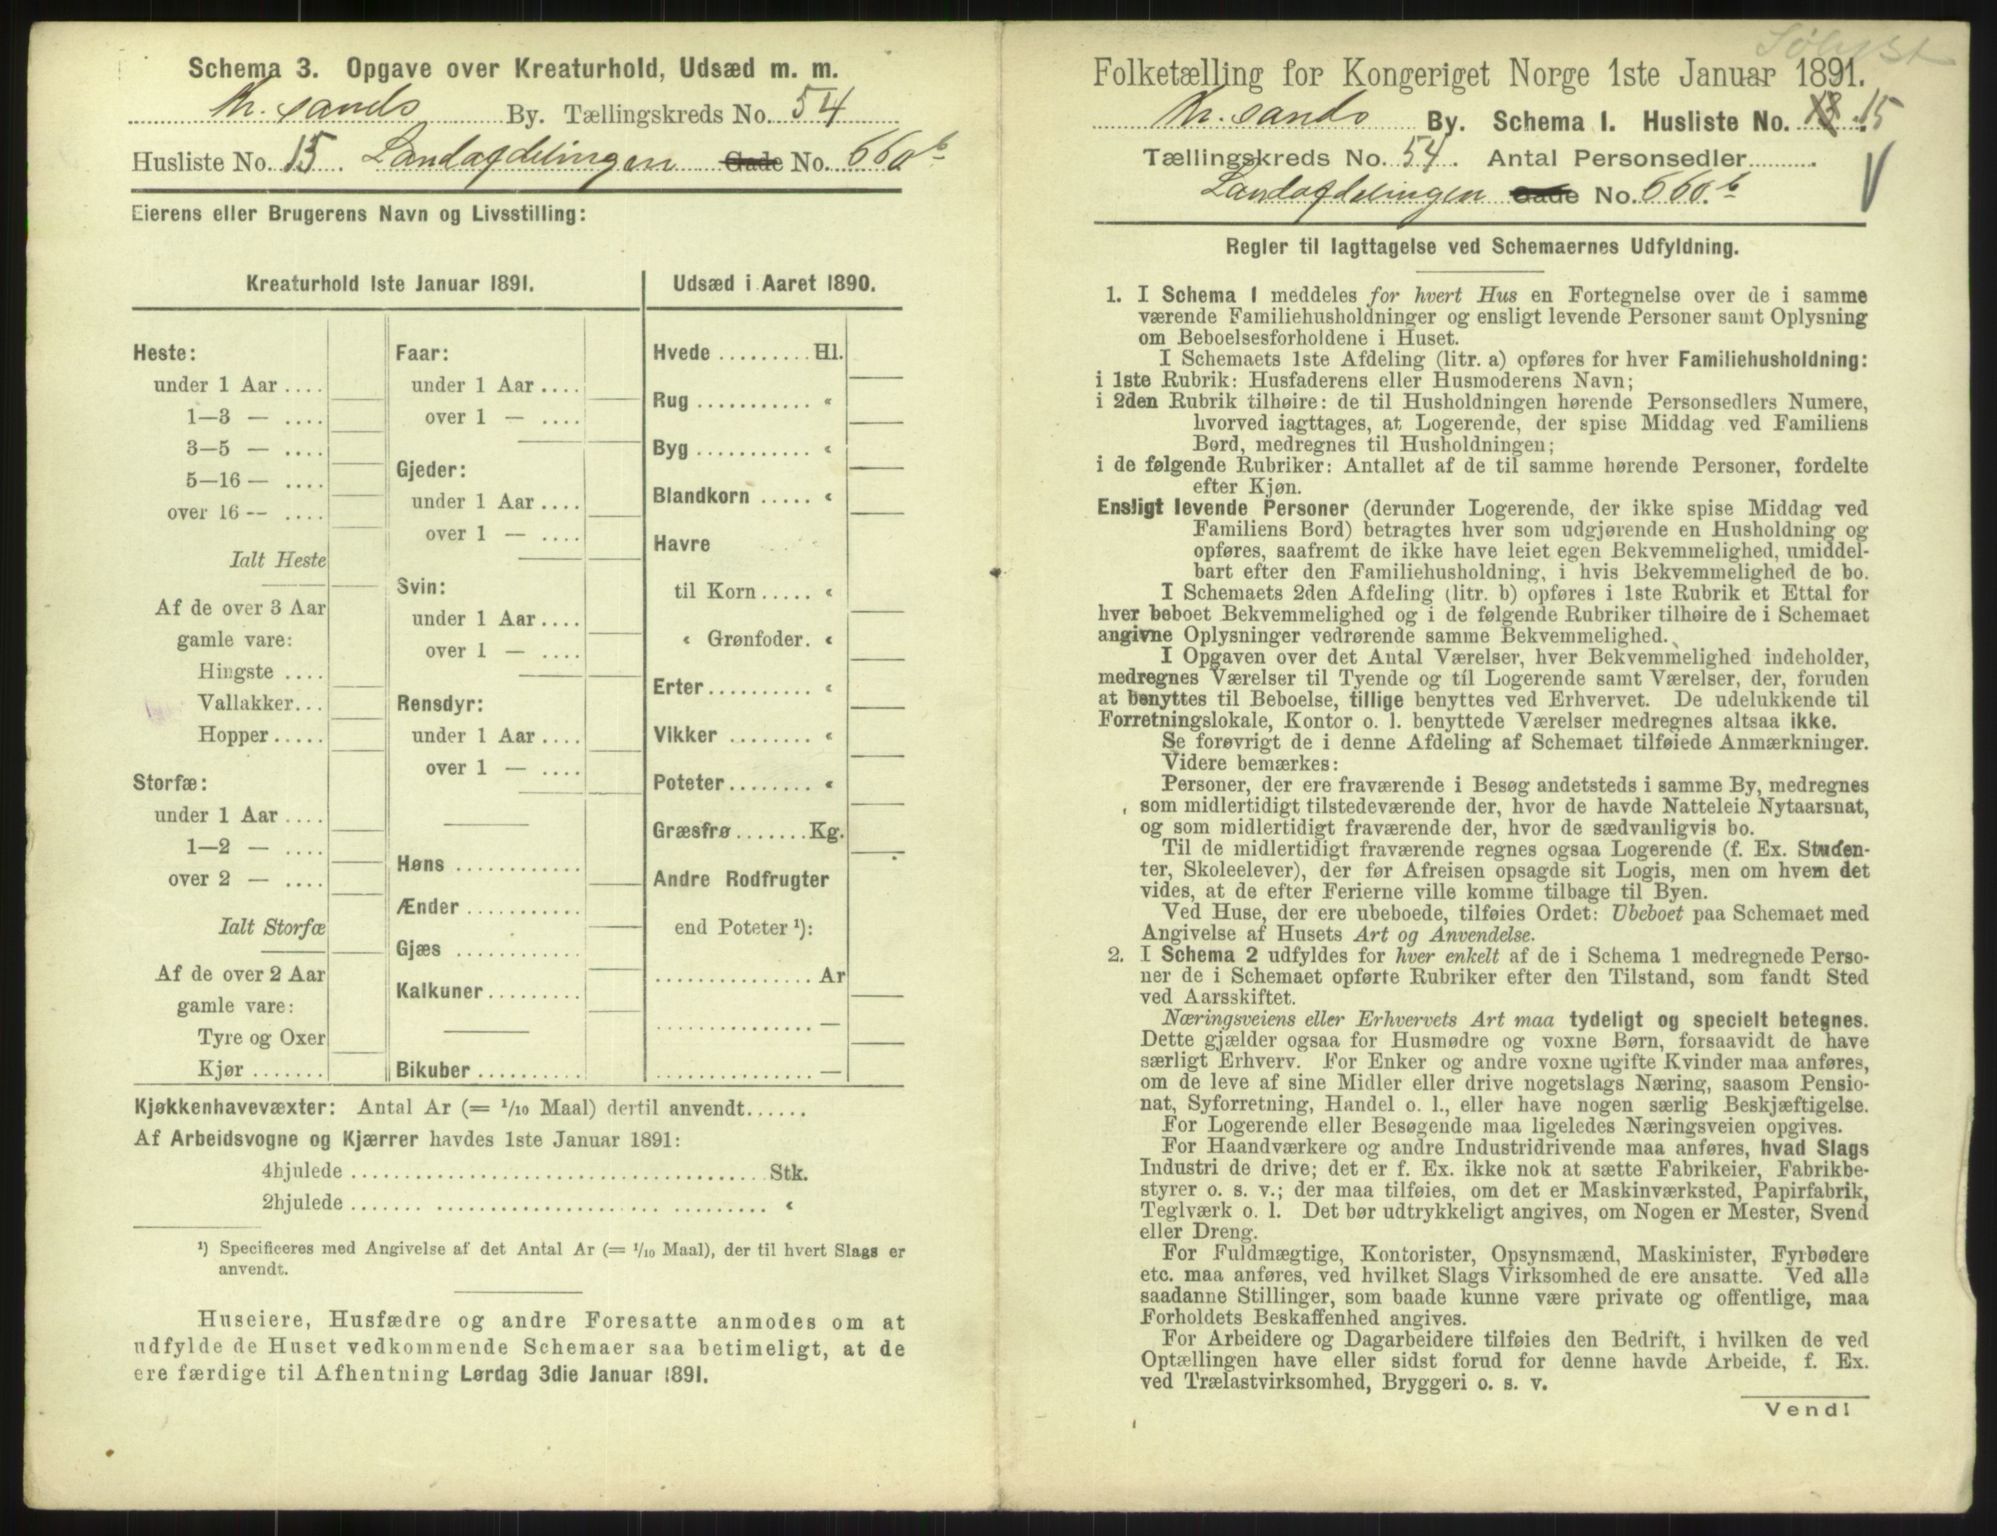 Schema 3. Opgave over Kreaturhold, Udsæd m. m.
Kr.sands By. Tællingskreds No. 54
Husliste No. 15. Landafdelingen Gade No. 660b
Eierens eller Brugerens Navn og Livsstilling:
Kreaturhold 1ste Januar 1891.
Heste:
under 1 Aar ....
1—3 — ....
3—5 — ....
5—16 — ....
over 16 -- ....
Ialt Heste
Af de over 3 Aar
gamle vare:
Hingste ....
Vallakker...
Hopper.....
Storfæ:
under 1 Aar ....
1—2 — ....
over 2 — ....
Ialt Storfæ
Af de over 2 Aar
gamle vare:
Tyre og Oxer
Kjør .......
Faar:
under 1 Aar ....
over 1 — ....
Gjeder:
under 1 Aar ....
over 1 — ....
Svin:
under 1 Aar ....
over 1 — ....
Rensdyr:
under 1 Aar ....
over 1 — ....
Høns ............
Ænder ...........
Gjæs ............
Kalkuner.........
Bikuber ..........
Udsæd i Aaret 1890.
Hvede ......... Hl.
Rug ........... «
Byg ........... «
Blandkorn ..... «
Havre
til Korn ..... «
« Grønfoder. «
Erter.......... «
Vikker ........ «
Poteter........ «
Græsfrø ....... Kg.
Andre Rodfrugter
end Poteter ¹):
............... Ar
............... —
............... —
Kjøkkenhavevæxter: Antal Ar (= 1/10 Maal) dertil anvendt......
Af Arbeidsvogne og Kjærrer havdes 1ste Januar 1891:
4hjulede ..................................... Stk.
2hjulede ..................................... «
¹) Specificeres med Angivelse af det Antal Ar (= 1/10 Maal), der til hvert Slags er
anvendt.
Huseiere, Husfædre og andre Foresatte anmodes om at
udfylde de Huset vedkommende Schemaer saa betimeligt, at de
ere færdige til Afhentning Lørdag 3die Januar 1891.
Folketælling for Kongeriget Norge 1ste Januar 1891.
Kr.sands By. Schema 1. Husliste No. 13. 15
Tællingskreds No. 54. Antal Personsedler.........
Landafdelingen Gade No. 660.b
Regler til Iagttagelse ved Schemaernes Udfyldning.
1. I Schema 1 meddeles for hvert Hus en Fortegnelse over de i samme
værende Familiehusholdninger og ensligt levende Personer samt Oplysning
om Beboelsesforholdene i Huset.
I Schemaets 1ste Afdeling (litr. a) opføres for hver Familiehusholdning:
i 1ste Rubrik: Husfaderens eller Husmoderens Navn;
i 2den Rubrik tilhøire: de til Husholdningen hørende Personsedlers Numere,
hvorved iagttages, at Logerende, der spise Middag ved Familiens
Bord, medregnes til Husholdningen;
i de følgende Rubriker: Antallet af de til samme hørende Personer, fordelte
efter Kjøn.
Ensligt levende Personer (derunder Logerende, der ikke spise Middag ved
Familiens Bord) betragtes hver som udgjørende en Husholdning og
opføres, saafremt de ikke have leiet egen Bekvemmelighed, umiddel-
bart efter den Familiehusholdning, i hvis Bekvemmelighed de bo.
I Schemaets 2den Afdeling (litr. b) opføres i 1ste Rubrik et Ettal for
hver beboet Bekvemmelighed og i de følgende Rubriker tilhøire de i Schemaet
angivne Oplysninger vedrørende samme Bekvemmelighed.
I Opgaven over det Antal Værelser, hver Bekvemmelighed indeholder,
medregnes Værelser til Tyende og til Logerende samt Værelser, der, foruden
at benyttes til Beboelse, tillige benyttes ved Erhvervet. De udelukkende til
Forretningslokale, Kontor o. l. benyttede Værelser medregnes altsaa ikke.
Se forøvrigt de i denne Afdeling af Schemaet tilføiede Anmærkninger.
Videre bemærkes:
Personer, der ere fraværende i Besøg andetsteds i samme By, medregnes
som midlertidigt tilstedeværende der, hvor de havde Natteleie Nytaarsnat,
og som midlertidigt fraværende der, hvor de sædvanligvis bo.
Til de midlertidigt fraværende regnes ogsaa Logerende (f. Ex. Studen-
ter, Skoleelever), der før Afreisen opsagde sit Logis, men om hvem det
vides, at de efter Ferierne ville komme tilbage til Byen.
Ved Huse, der ere ubeboede, tilføies Ordet: Ubeboet paa Schemaet med
Angivelse af Husets Art og Anvendelse.
2. I Schema 2 udfyldes for hver enkelt af de i Schema 1 medregnede Perso-
ner de i Schemaet opførte Rubriker efter den Tilstand, som fandt Sted
ved Aarsskiftet.
Næringsveiens eller Erhvervets Art maa tydeligt og specielt betegnes.
Dette gjælder ogsaa for Husmødre og voxne Børn, forsaavidt de have
særligt Erhverv. For Enker og andre voxne ugifte Kvinder maa anføres,
om de leve af sine Midler eller drive nogetslags Næring, saasom Pensio-
nat, Syforretning, Handel o. l., eller have nogen særlig Beskjæftigelse.
For Logerende eller Besøgende maa ligeledes Næringsveien opgives.
For Haandværkere og andre Industridrivende maa anføres, hvad Slags
Industri de drive; det er f. Ex. ikke nok at sætte Fabrikeier, Fabrikbe-
styrer o. s. v.; der maa tilføies, om det er Maskinværksted, Papirfabrik,
Teglværk o. l. Det bør udtrykkeligt angives, om Nogen er Mester, Svend
eller Dreng.
For Fuldmægtige, Kontorister, Opsynsmænd, Maskinister, Fyrbødere
etc. maa anføres, ved hvilket Slags Virksomhed de ere ansatte. Ved alle
saadanne Stillinger, som baade kunne være private og offentlige, maa
Forholdets Beskaffenhed angives.
For Arbeidere og Dagarbeidere tilføies den Bedrift, i hvilken de ved
Optællingen have eller sidst forud for denne havde Arbeide, f. Ex.
ved Trælastvirksomhed, Bryggeri o. s. v.
Vend!